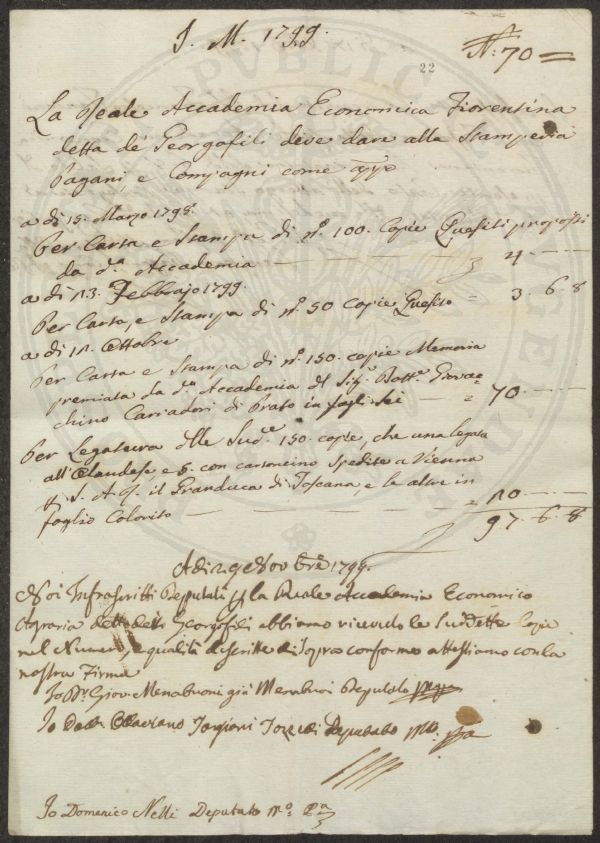 J. M. 1799.
N: 70 =
22
La Reale Accademia Economica Fiorentina
detta de Georgofili deve dare alla Stamperia
Pagani, e Compagni come appo
a di 15. Marzo 1798.
Per Carta e Stampa di n.º 100. Copie Quesiti proposti
da d.ª Accademia — 4 . — . —
a di 13. Febbrajo 1799.
Per Carta, e Stampa di n.º 50 Copie Quesito = 3. 6. 8
a di 11. Ottobre
Per Carta e Stampa di n.º 150. copie Memoria
premiata da d.ª Accademia del Sig.r Dott.e Giovac=
chino Carradori di Prato in fogli sei — = 70. — . —
Per Legatura delle Sud.e 150. copie, che una legata
all'Olandese, e 5. con cartoncino spedite a Vienna
S. A. R. il Granduca di Toscana, e le altre in
foglio Colorito — = 20. — . —
97. 6. 8
Adi 29 Novbre 1799.
Noi Infrascritti Deputati p la Reale Accademia Economico
Agraria detta dei Georgofili abbiamo ricevuto le suddette Copie
nel Numero, e qualità descritte di sopra conforme attestiamo con la
nostra Firma
Io Dr. Giov. Menabuoni Deputato
Io Dott. Ottaviano Targioni Tozzetti Deputato
Io Domenico Nelli Deputato